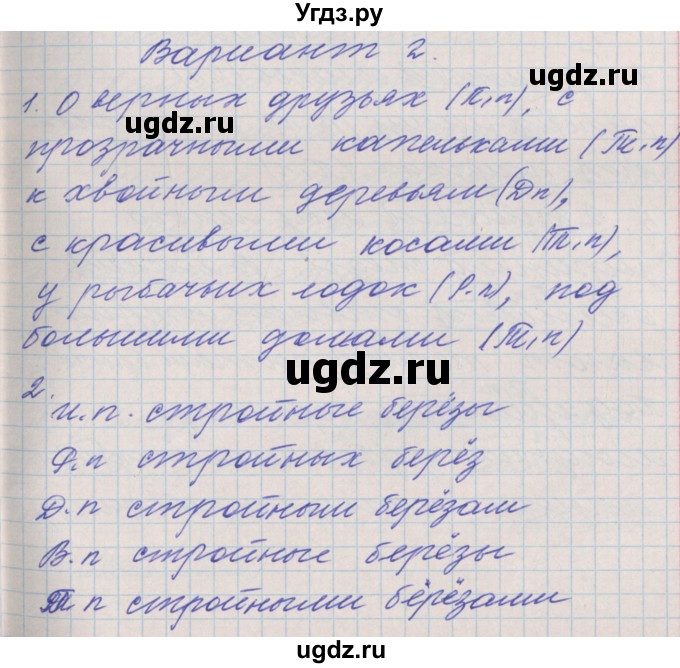 Угдз.ру
Вариант 2.
1. О верных друзьях (П.п), с
ugdz.ru
прозрачными капельками (Т.п)
ugdz.ru
к хвойным деревьям (Дп),
с красивыми косами (Т.п),
у рыбачьих лодок (Р.п), под
большими домами (Т.п)
ugdz.ru
2.
И.п. стройные берёзы
Р.п стройных берёз
Д.п стройным берёзам
ugdz.ru
В.п стройные берёзы
ugdz.ru
Т п стройными берёзами
ugdz.ru